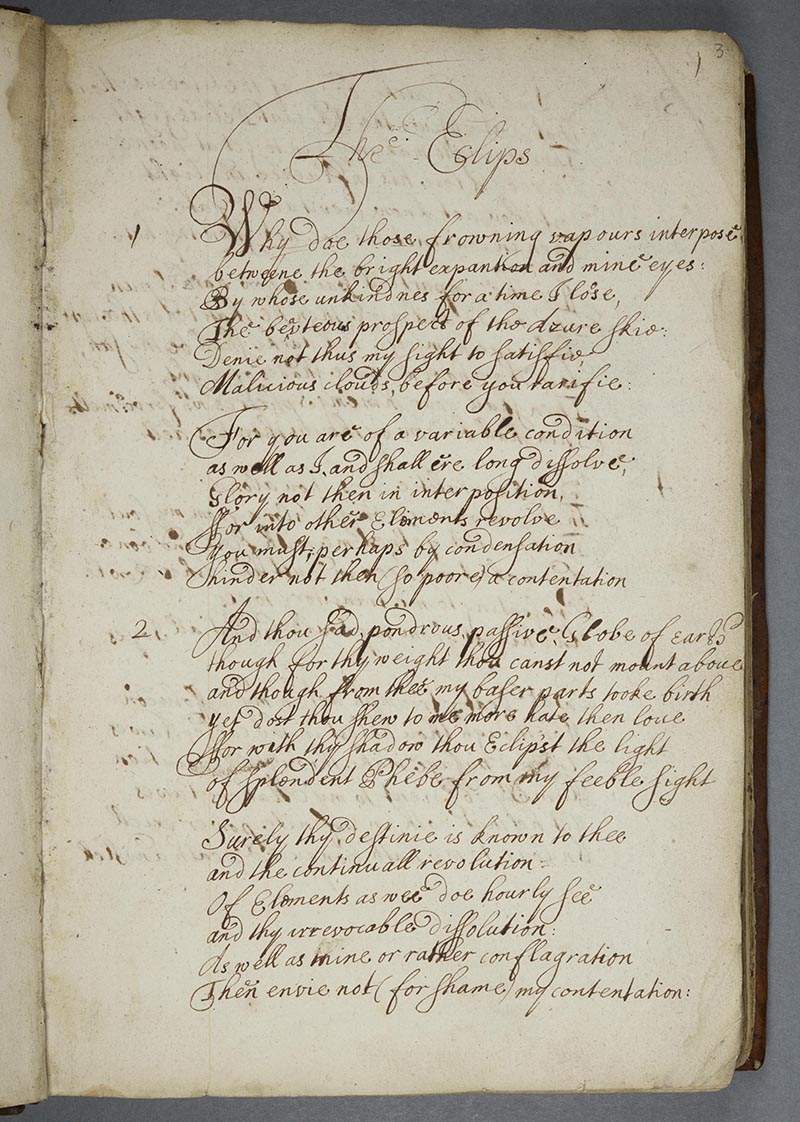 3
1
The Eclips
1 Why doe those frowning vapours interpose
betweene the bright expantion and mine eyes:
By whose unkindnes for a time I lose,
The bevteous prospect of the Azure skie:
Denie not thus my sight to satisfie
Malicious clouds, before you rarifie:
For you are of a variable condition
as well as I, and shall ere long dissolve,
Glory not then in interposition,
ffor into other Elements revolve
you must, perhaps by condensation
hinder not then (so poore) a contentation
2 And thou sad, pondrous, passive, Globe of earth
though for thy weight thou canst not mount above
and though from thee my baser parts tooke birth
yet dost thou shew to me more hate then love
ffor with thy shadow thou Eclipst the light
of splendent Phebe from my feeble sight
Surely thy destinie is known to thee
and the continuall revolution:
Of Elements as wee doe hourly see
and thy irrevocable dissolution:
As well as mine or rather conflagration
Then envie not (for shame) my contentation: